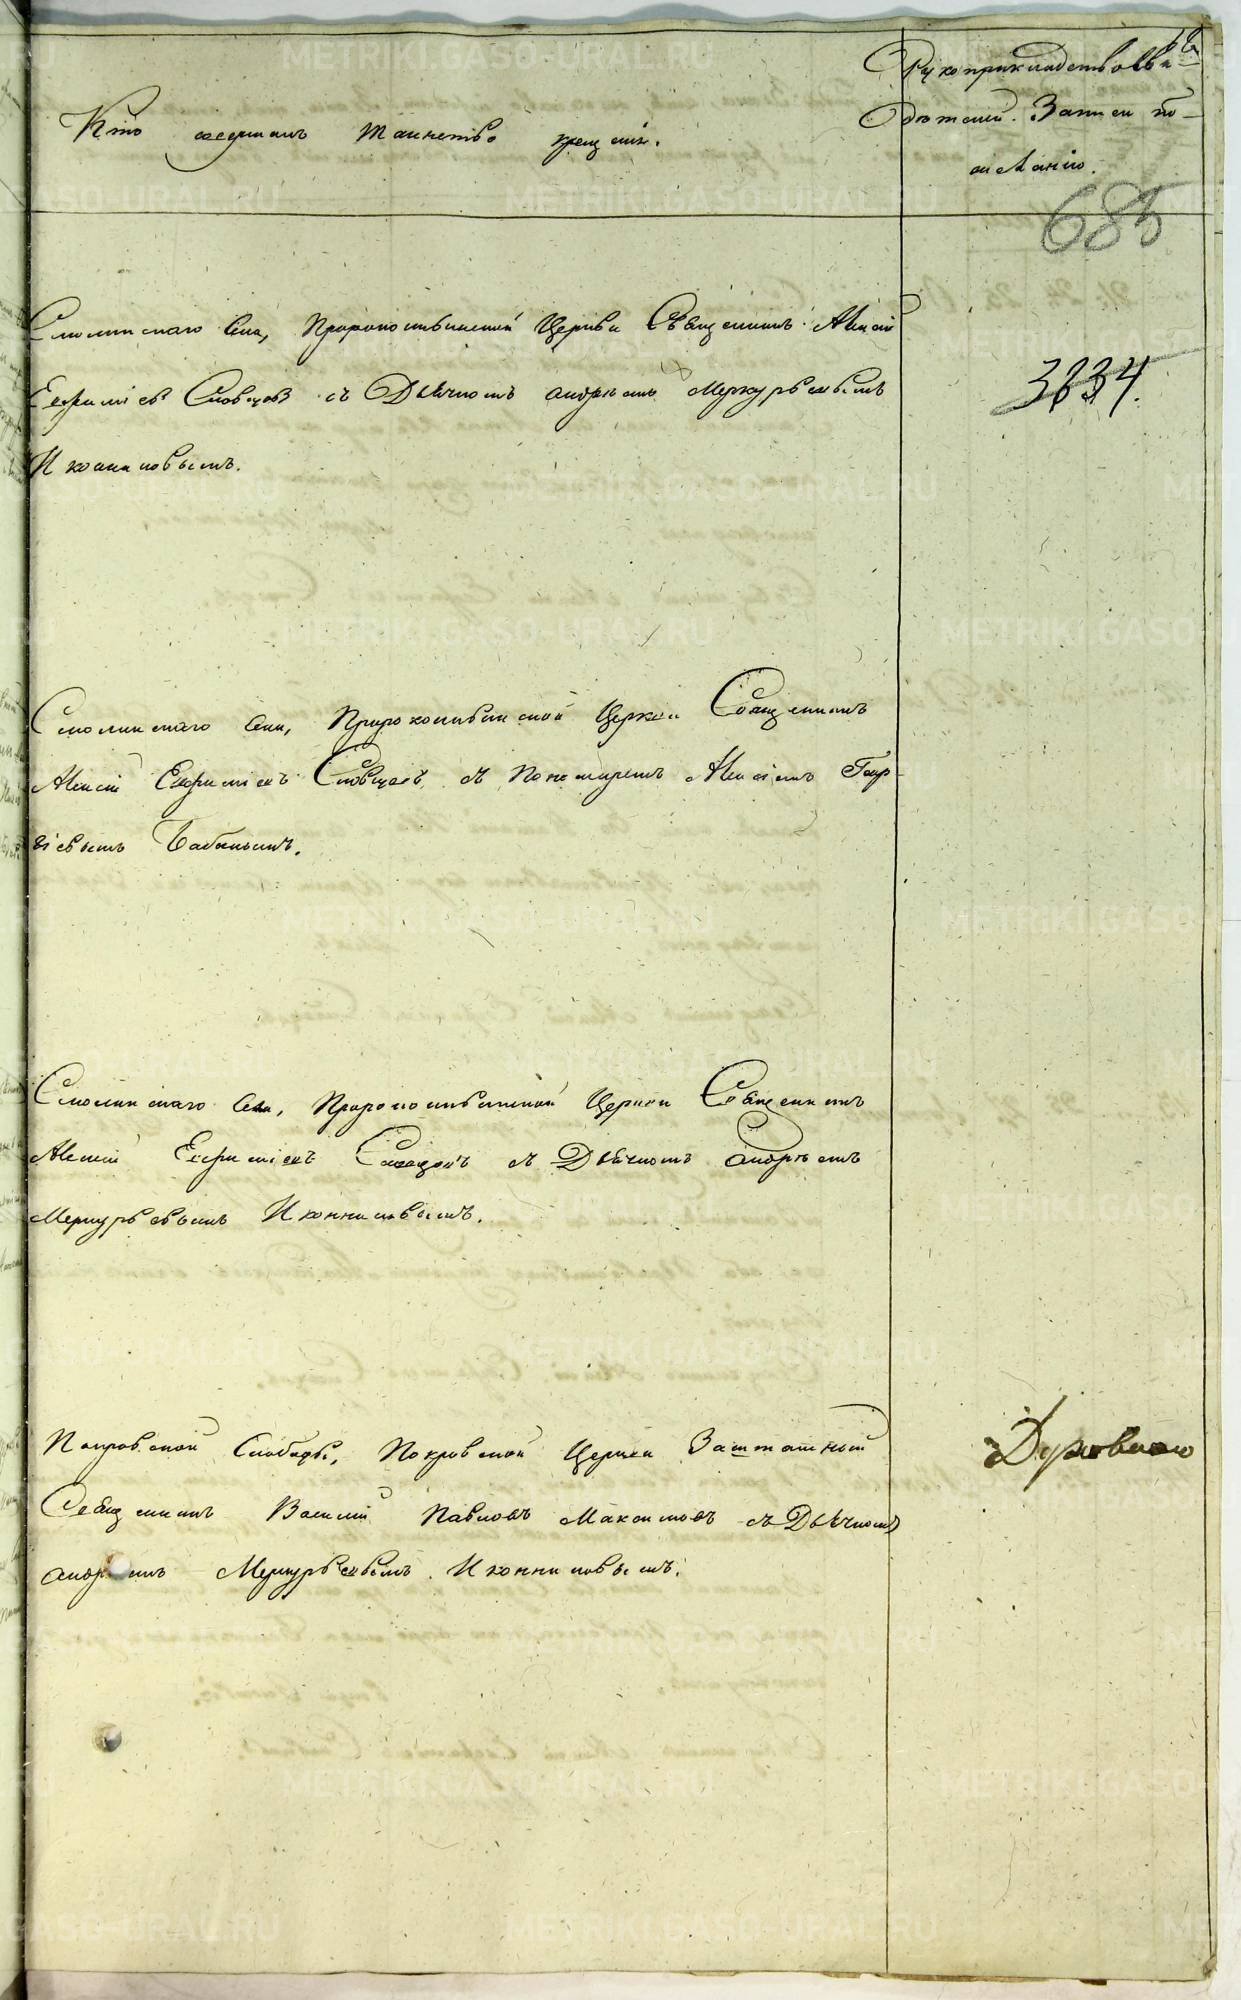 Кто совершалъ таинство крещенія.
Рукоприкладство сви-
дѣтелей записи по
желанію.
685
3834.
Смолинскаго Села, Пророкоильинской Церкви Священникъ Алексій
Евфиміевъ Словцовъ съ Дьячкомъ андреемъ Меркурьевымъ
Иконниковымъ.
Смолинскаго Села, Пророкоильинской Церкви Священникъ
Алексій Евфиміевъ Словцовъ, съ Пономаремъ Алексіемъ
Бабинымъ.
Смолинскаго Села, Пророкоильинской Церкви Священникъ
Алексій Евфиміевъ Словцовъ съ Дьячкомъ андреемъ
Меркурьевымъ Иконниковымъ.
Покровской Слободы, Покровской Церкви Заштатный
Священникъ Василій Павловъ Максимовъ съ Дьячкомъ
андреемъ Меркурьевымъ Иконниковымъ.
METRIKI.GASO-URAL.RU